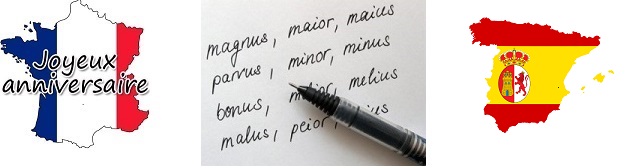 Joyeux
anniversaire
magnus, maior, maius
parvus, minor, minus
bonus, melius
malus, peior,